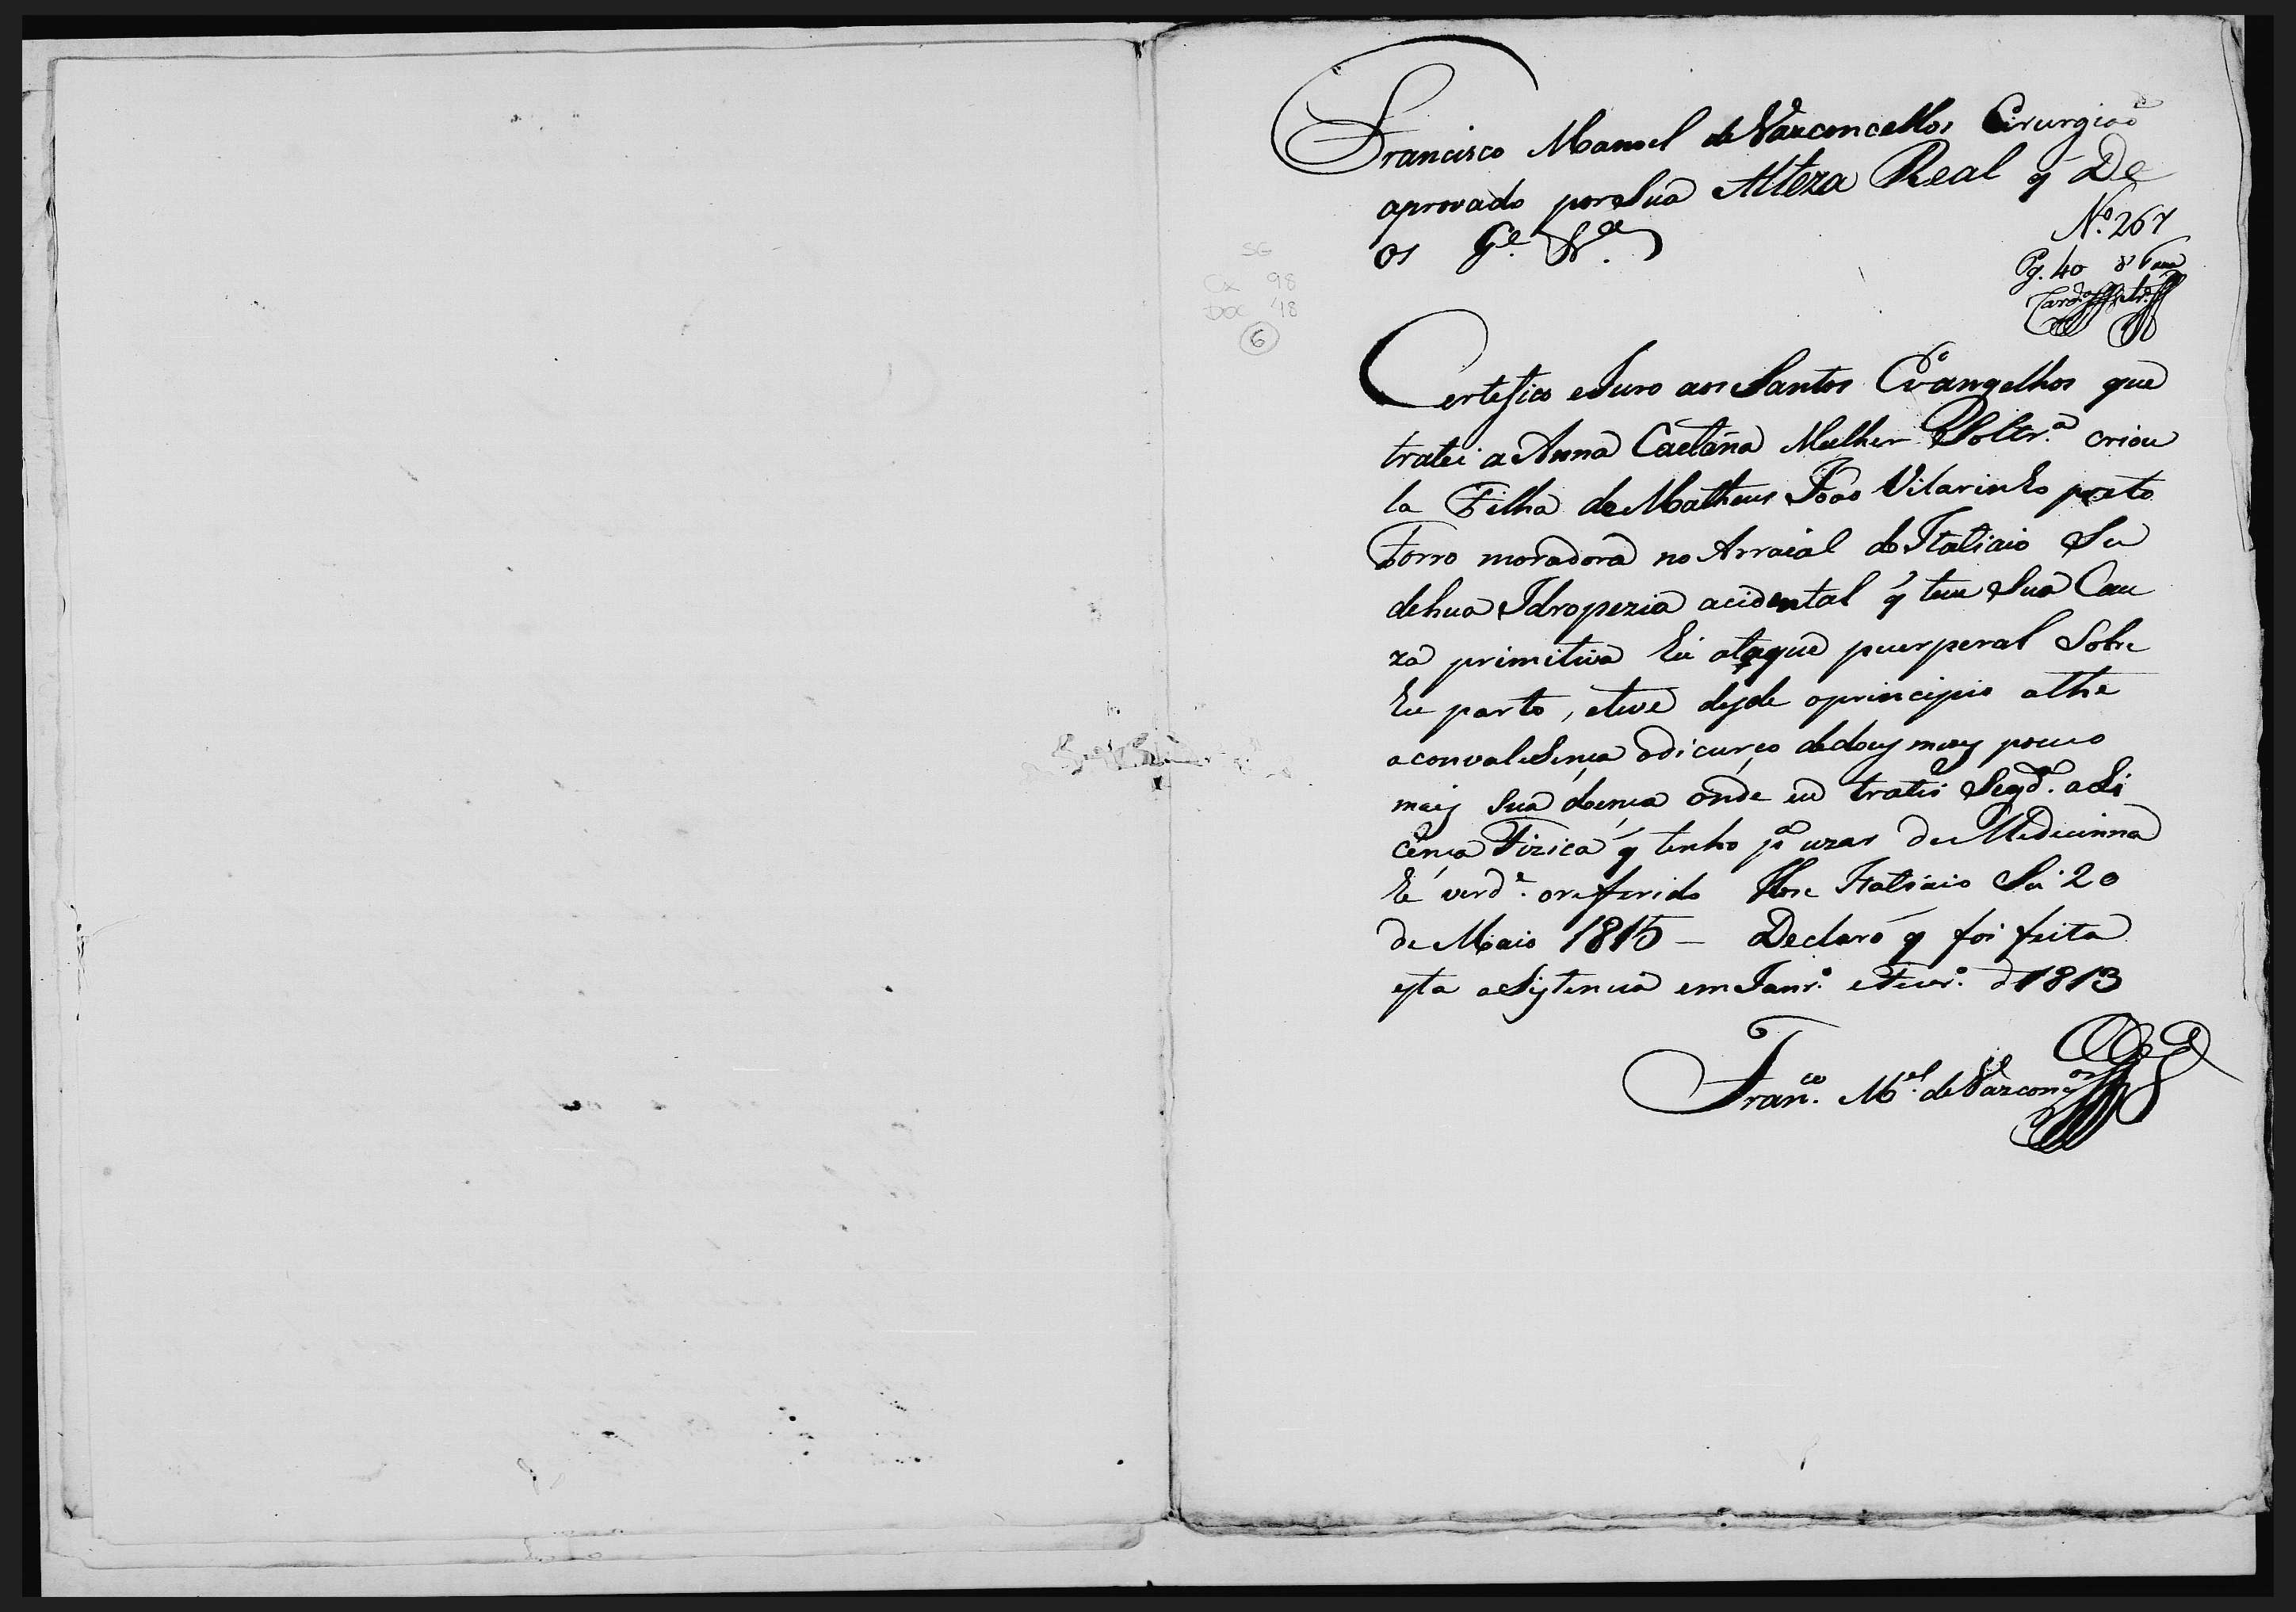 Francisco Manoel de Vazconcellos Cirurgiaõ
aprovado por Sua Alteza Real q̃ De
os G.e &.a
N.o 267
Pg. 40 rs
SG
Cx 98
Doc 48
6
Certefico e Juro aos Santos Evangelhos que
tratei a Anna Caetana Mulher Soltr.a criou
la Filha de Matheus Joao Vilarinho preto
Forro moradora no Arraial do Itatiaio
de hua Idropezia acidental q̃ teve Sua Cau
za primitiva hũ ataque puerperal Sobre
hu parto, e teve desde o principio athe
a convalesença o dicurço de dous mezes pouco
mais Sua doença onde eu tratei Segd.o a Li
cença Fizica q̃ tenho p.a uzar de Medicinna
hé verd.e o refferido Hoje Itatiaio 20
de Maio 1815 — Declaro q̃ foi feita
esta aSistencia em Janr.o e Fevr.o d 1813
Fran.co M.el de Vazcon.os